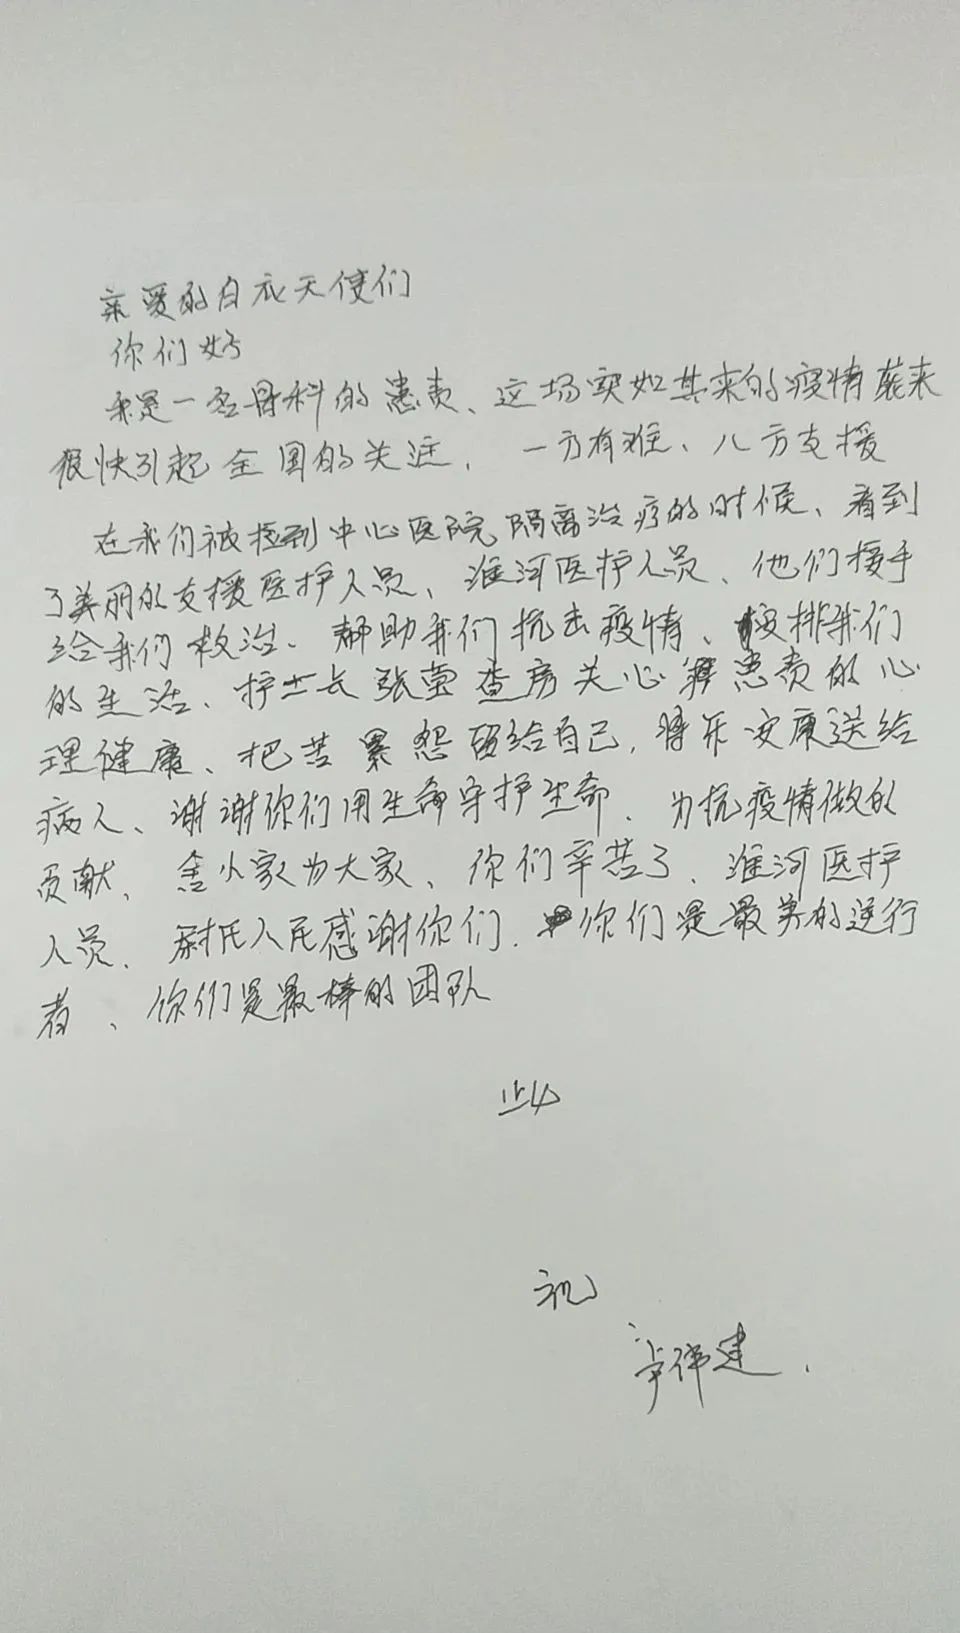 亲爱的白衣天使们
你们好
我是一名骨科的患责、这场突如其来的疫情袭来
很快引起全国的关注. 一方有难、八方支援
在我们被接到中心医院隔离治疗的时候、看到
了美丽的支援医护人员、淮河医护人员、他们接手
给我们救治、帮助我们抗击疫情、按排我们
的生活、护士长张莹查房关心患责的心
理健康、把苦累怨留给自己, 将乐安康送给
病人、谢谢你们用生命守护生命. 为抗疫情做的
贡献. 舍小家为大家、你们辛苦了. 淮河医护
人员. 尉氏人民感谢你们. 你们是最美的逆行
者、你们是最棒的团队
此
祝
伟建.